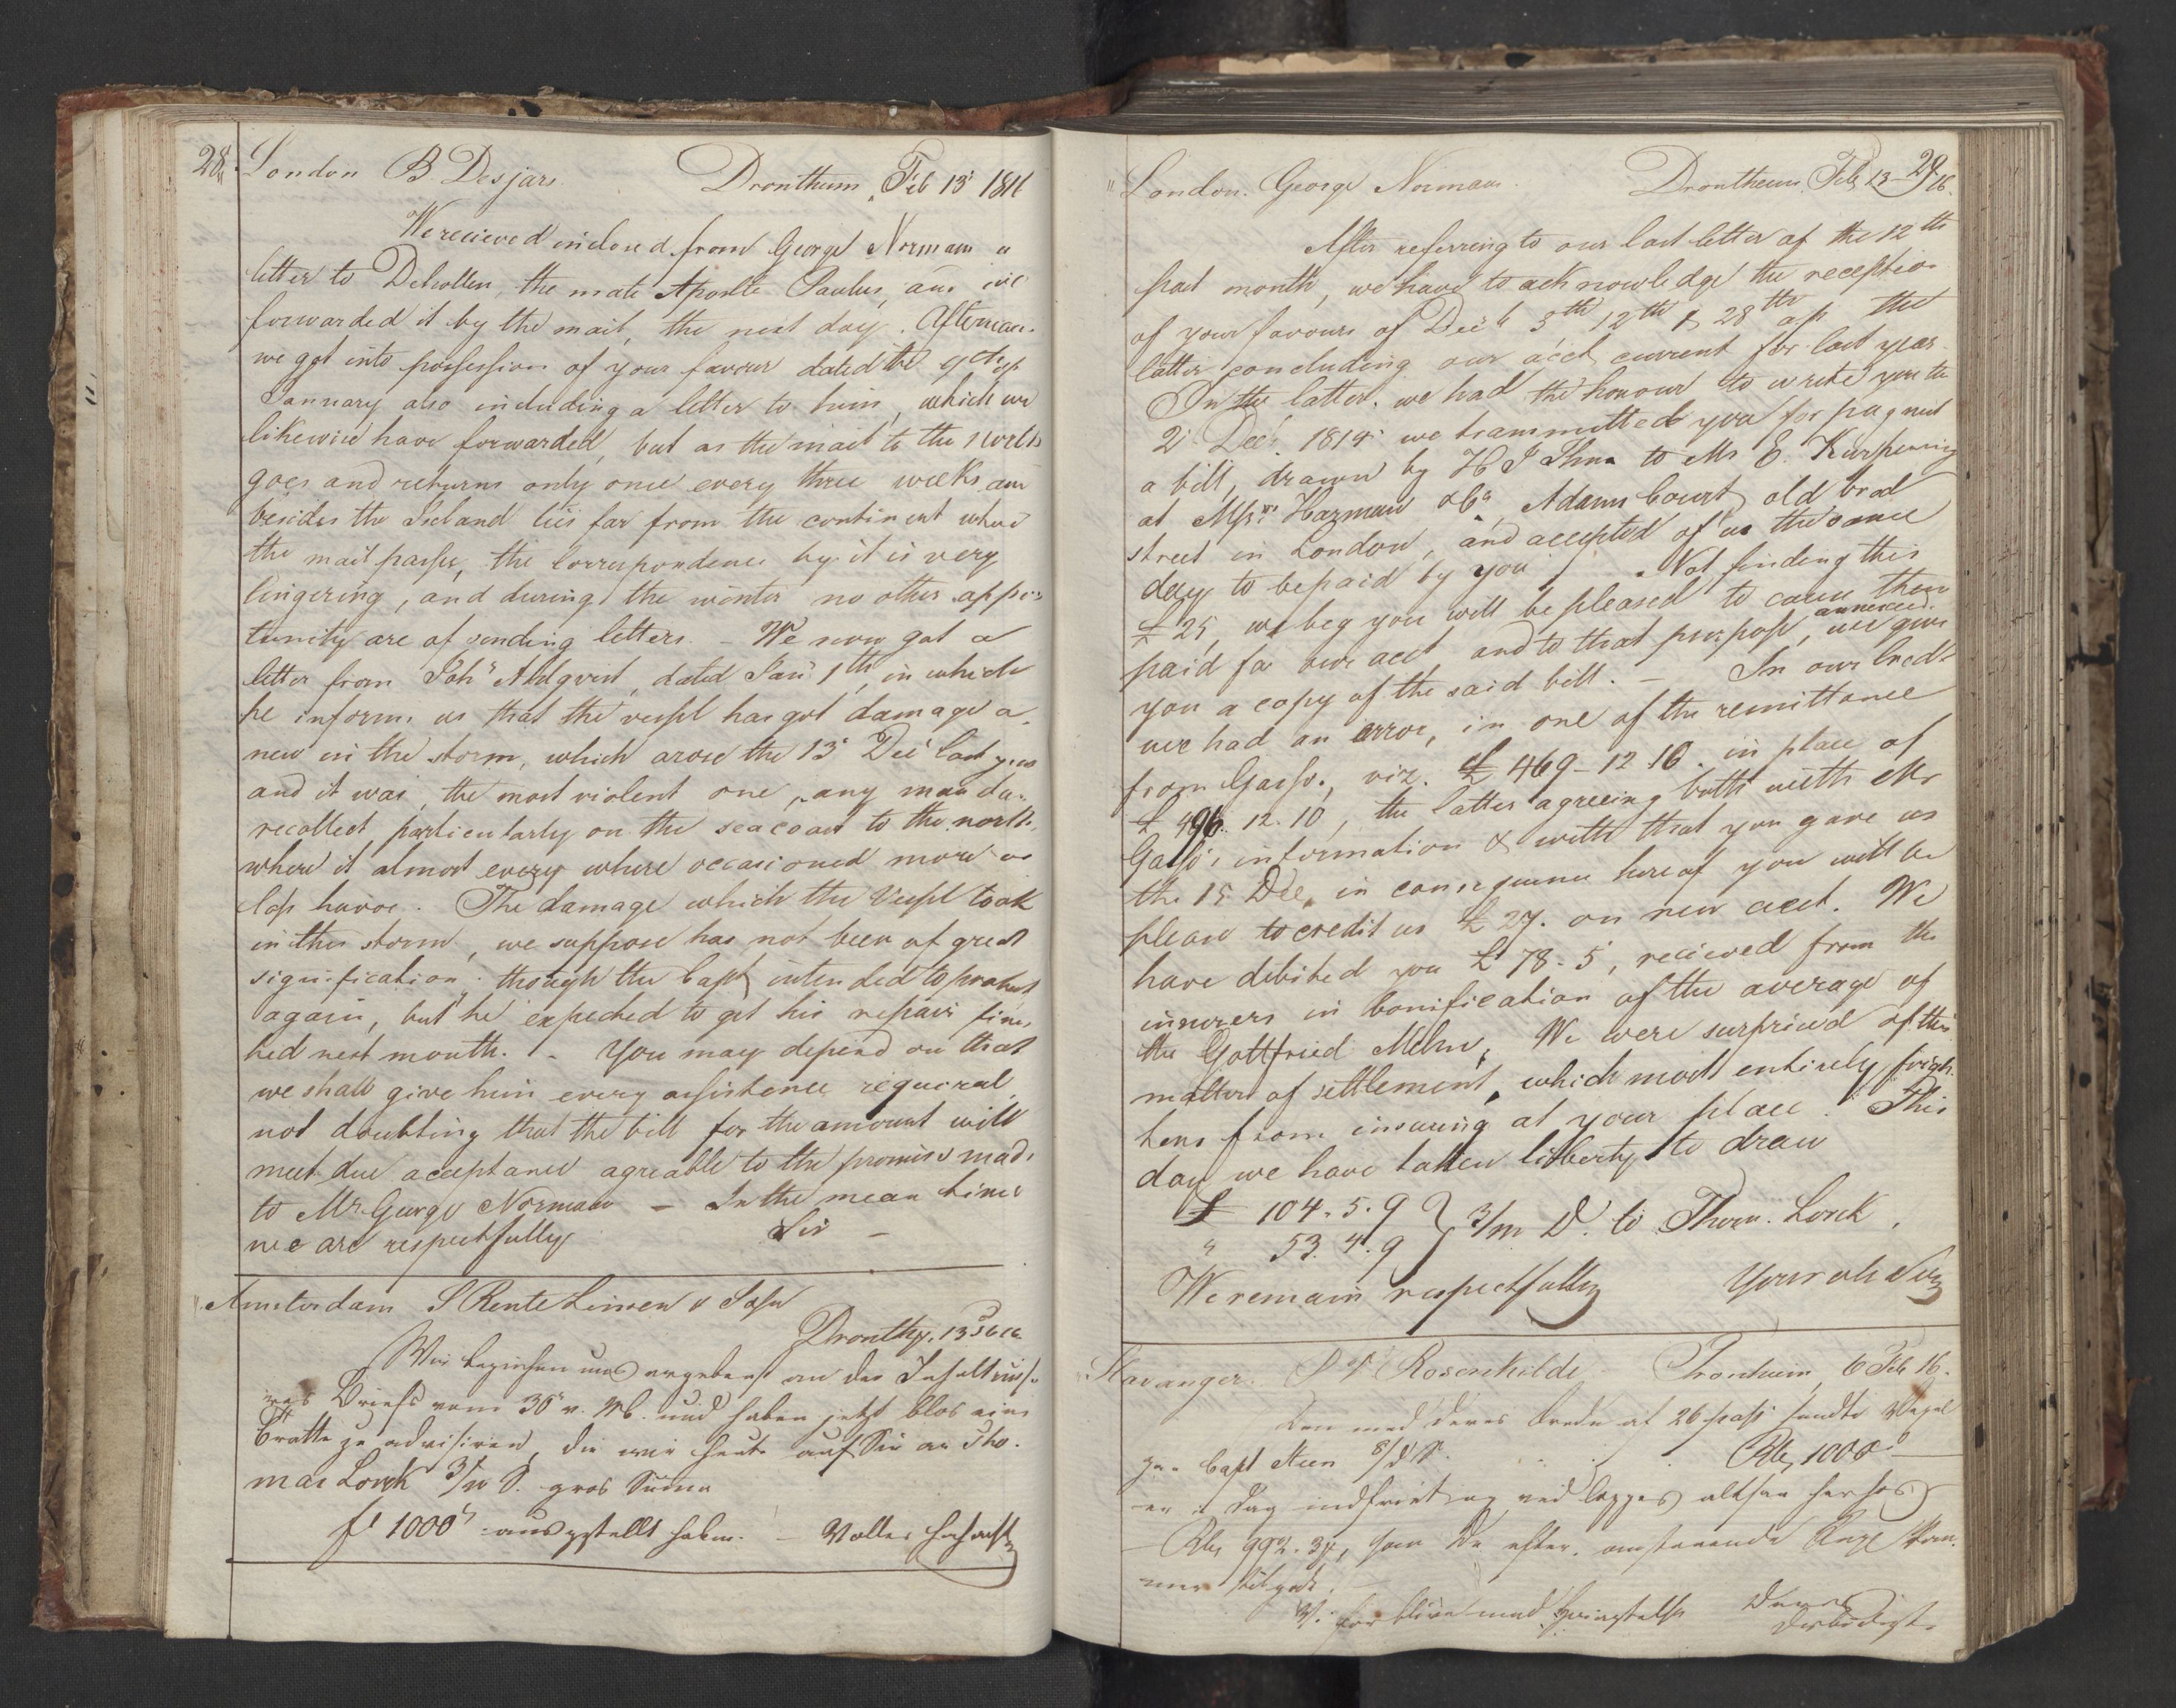 28.
London B Desjars. Drontheim, Feb 13 1816
We recieved inclosed from George Norman a
letter to the mate Apostle Paulus, and we
forwarded it by the mail, the next day. Afterwar-
we got into possession of your favour dated the
January also including a letter to him, which we
likewise have forwarded, but as the mail to the North
goes and returns only once every three weeks, and
besides the Iseland lies far from the continent where
the mail passes, the correspondence by it is very
lingering, and during the winter no other oppor-
tunity are of sending letters. – We now got a
letter from Joh Ahlqvist, dated Jan 1th, in which
he informs us that the vessel has got damage a
new in the storm, which arose the 13 Dec last year
and it was, the most violent one, any man da
recollect, particularly on the seacoast to the north,
where it almost every where occasioned more or
less havoc. The damage which the Vessel took
in this storm, we suppose has not been of great
signification; though the Capt intended to protest
again, but he expected to get his repairs finis
hed next month. – You may depend on that
we shall give him every assistence required,
not doubting that the bill for the amount will
meet due acceptance agreable to the promise made
to Mr George Norman – In the mean time
we are respectfully Sir –
Amsterdam S Rente Linsen & Sohn
Dronthm. 13 Feb 16
Wir beziehen uns ergebenst an den Inhalt uns-
res Briefs vom 30 v. Mt. und haben jetzt blos eine
Tratte zu advisiren, die wir heute auf Sie an Tho-
mas Lorck 3/m D. gros
f 1000 ausgestellt haben. – Voller Hochacht
29
London. George Norman. Drontheim, Feb 13 – 16.
After referring to our last letter of the 12th
past month, we have to acknowledge the reception
of your favours of Decb 5th 12th & 28th ap the
latter concluding our acct current for last year
In the latter. we had the honour to write you the
2 Dec. 1814 we transmitted you for payment
a bill, drawn by H J to Mr E.
at Messrs Harman & Co, Adams Court, old brod
street in London, and accepted of us the same
day to be paid by you / Not finding this
£ 25, we beg you will be pleased to cause them
paid for our acct, and to that purpose, we give annexed
you a copy of the said bill. – In our Credt
we had an error, in one of the remittance
from Gasse., viz. £ 469–12 10. in place of
£ 496. 12. 10, the latter agreeing both with Mr
Gasse's information & with that you gave us
the 15 Dec, in consequence hereof you will be
please to credit us £ 27. on new acct. We
have debited you £ 78. 5, recieved from the
insurers in bonification of the average of
the Gottfried Mehn. We were surprised of this
matter of settlement, which most entirely frigh-
tens from insuring at your place. This
day we have taken liberty to draw
£ 104. 5. 9 } 3/m D. to Thom. Lorck.
" 53. 4. 9
We remain respectfully Your ob Serv
Stavanger. P V Rosenkilde Tronhiem, 6 Feb 16.
Den med deres brede af 26 pass sendte Vexel
paa Capt Steen 8/d D. Rb 1000
er i dag indfriet og vedlegges altsaa herhos
Rb 992. 34,
Vi forblive med Høiagtelse Deres